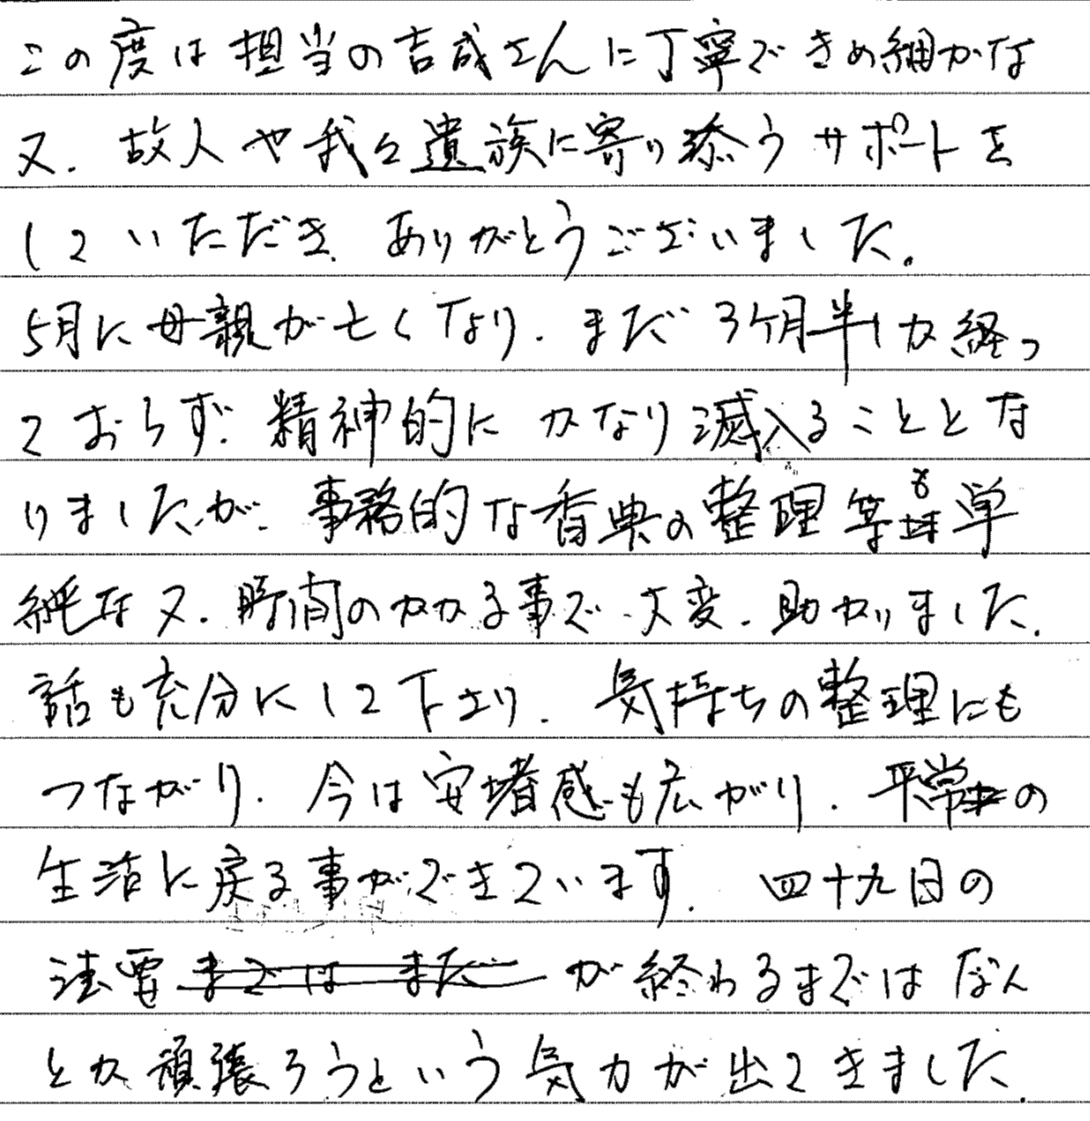 この度は担当の吉成さんに丁寧できめ細かな
又、故人や我々遺族に寄り添うサポートを
していただき、ありがとうございました。
5月に母親が亡くなり、まだ3ヶ月半しか経っ
ておらず、精神的にかなり滅入ることとな
りましたが、事務的な香典の整理等も単
純な又、時間のかかる事で、大変、助かりました。
話も充分にして下さり、気持ちの整理にも
つながり、今は安堵感も広がり、平常の
生活に戻る事ができています。四十九日の
法要までは まだが終わるまではなん
とか頑張ろうという気力が出てきました。